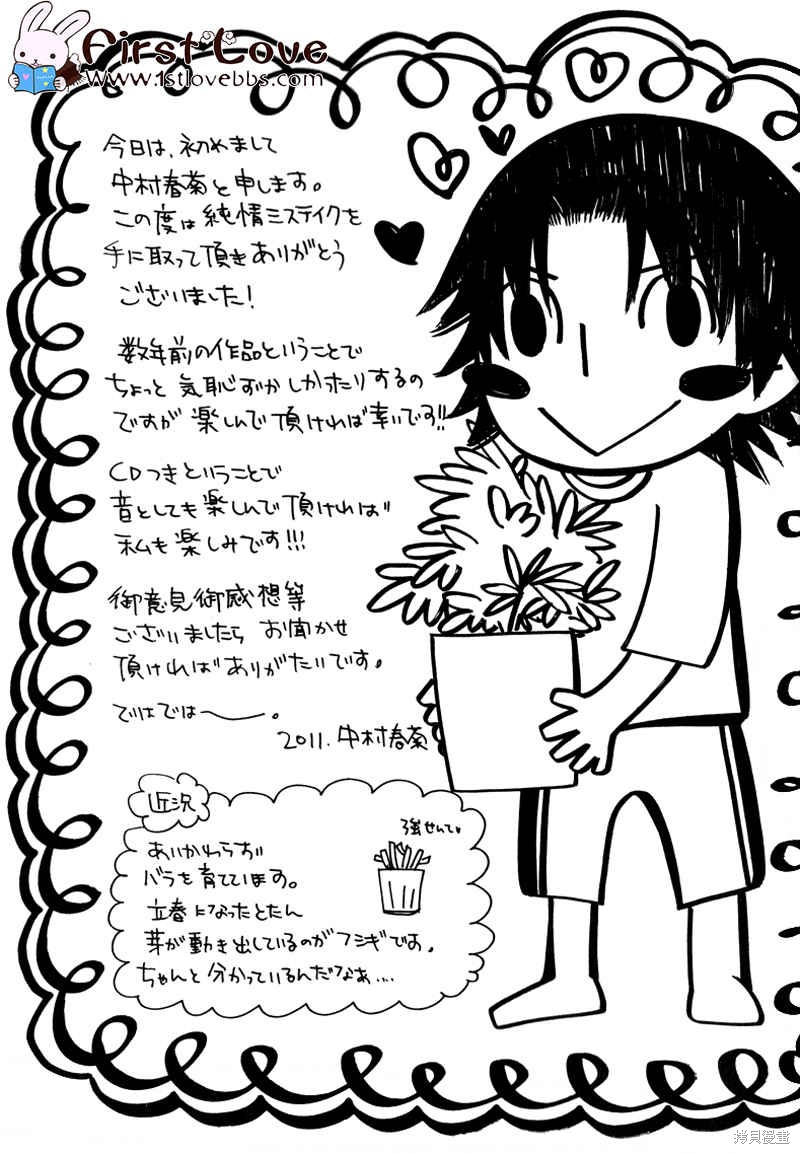 First Love
www.1stlovebbs.com
今日は、初めまして
中村春菊と申します。
この度は純情ミステイクを
手に取って頂きありがとう
ございました!
数年前の作品ということで
ちょっと気恥ずかしかったりするの
ですが楽しんで頂ければ幸いです!!
CDつきということで
音としても楽しんで頂ければ
私も楽しみです!!!
御意見御感想等
ございましたらお聞かせ
頂ければありがたいです。
ではでは〜。
2011.中村春菊
近況
強せんてい
あいかわらず
バラを育てています。
立春になったとたん
芽が動き出しているのがフシギです。
ちゃんと分かっているんだなぁ....
拷貝漫畫